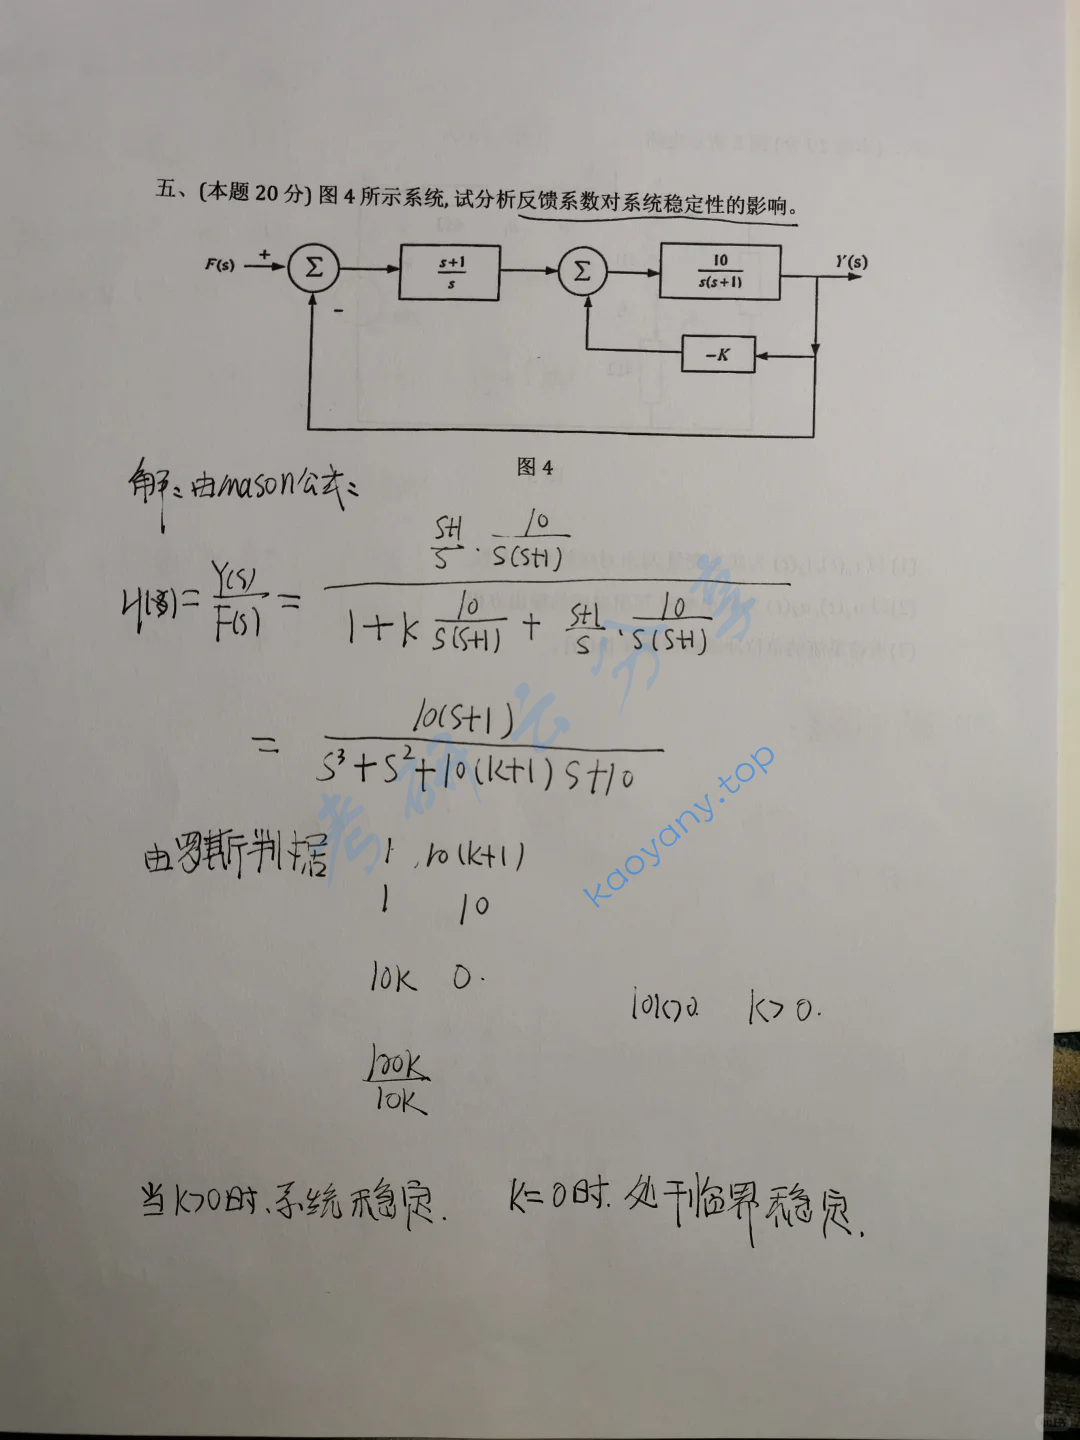 五、(本题 20 分) 图 4 所示系统, 试分析反馈系数对系统稳定性的影响。
F(s) + Σ s+1/s Σ 10/s(s+1) Y(s)
−
−K
图 4
解：由mason公式：
H(s) = Y(s)/F(s) = (s+1)/s · 10/s(s+1) / 1 + K 10/s(s+1) + (s+1)/s · 10/s(s+1)
= 10(s+1) / s³+s²+10(K+1)s+10
由罗斯判据 1 10(K+1)
1 10
10K 0.
10K>0. K>0.
100K/10K
当K>0时、系统稳定. K=0时. 处于临界稳定.
考研云分享
kaoyany.top